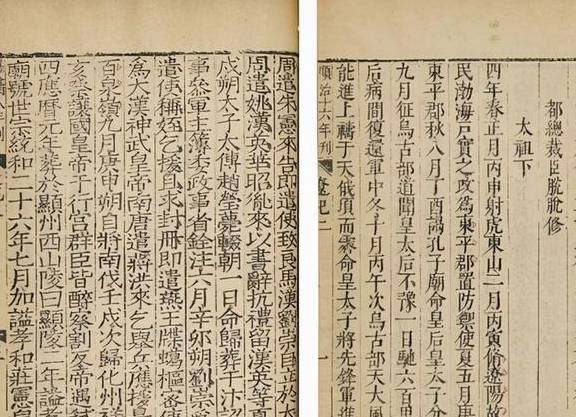 都總裁臣脫脫修
太祖下
四年春正月丙申射虎東山二月丙寅脩遼陽故
民渤海戶實之改爲東平郡置防禦使夏五月
東平郡秋八月丁酉謁孔子廟命皇后皇太子分
九月征烏古部道聞皇太后不豫一日馳六百里
后病間復還軍中冬十月丙午次烏古部天大風
能進上禱于天俄頃而霽命皇太子將先鋒軍進
順治十六年刊 遼紀二
周遣朱憲來告即遣使致良馬漢劉崇自立於太
周遣姚漢英華昭胤來以書辭抗禮留漢英等
戌朔太子太傅趙瑩薨輟朝一日命歸葬于汴詔
事叅軍主簿委政事省銓注六月辛卯朔劉崇爲
遣使稱姪乞援且求封冊即遣燕王牒蠟樞密使
爲大漢神武皇帝南唐遣蔣洪來乞舉兵應援
百泉嶺九月庚申朔自將南伐壬戌次歸化州祥
亥祭讓國皇帝于行宮群臣皆醉察割反帝遇
四應曆元年葬於顯州西山陵曰顯陵二年謚孝
廟號世宗統和二十六年七月加謚孝和莊憲皇